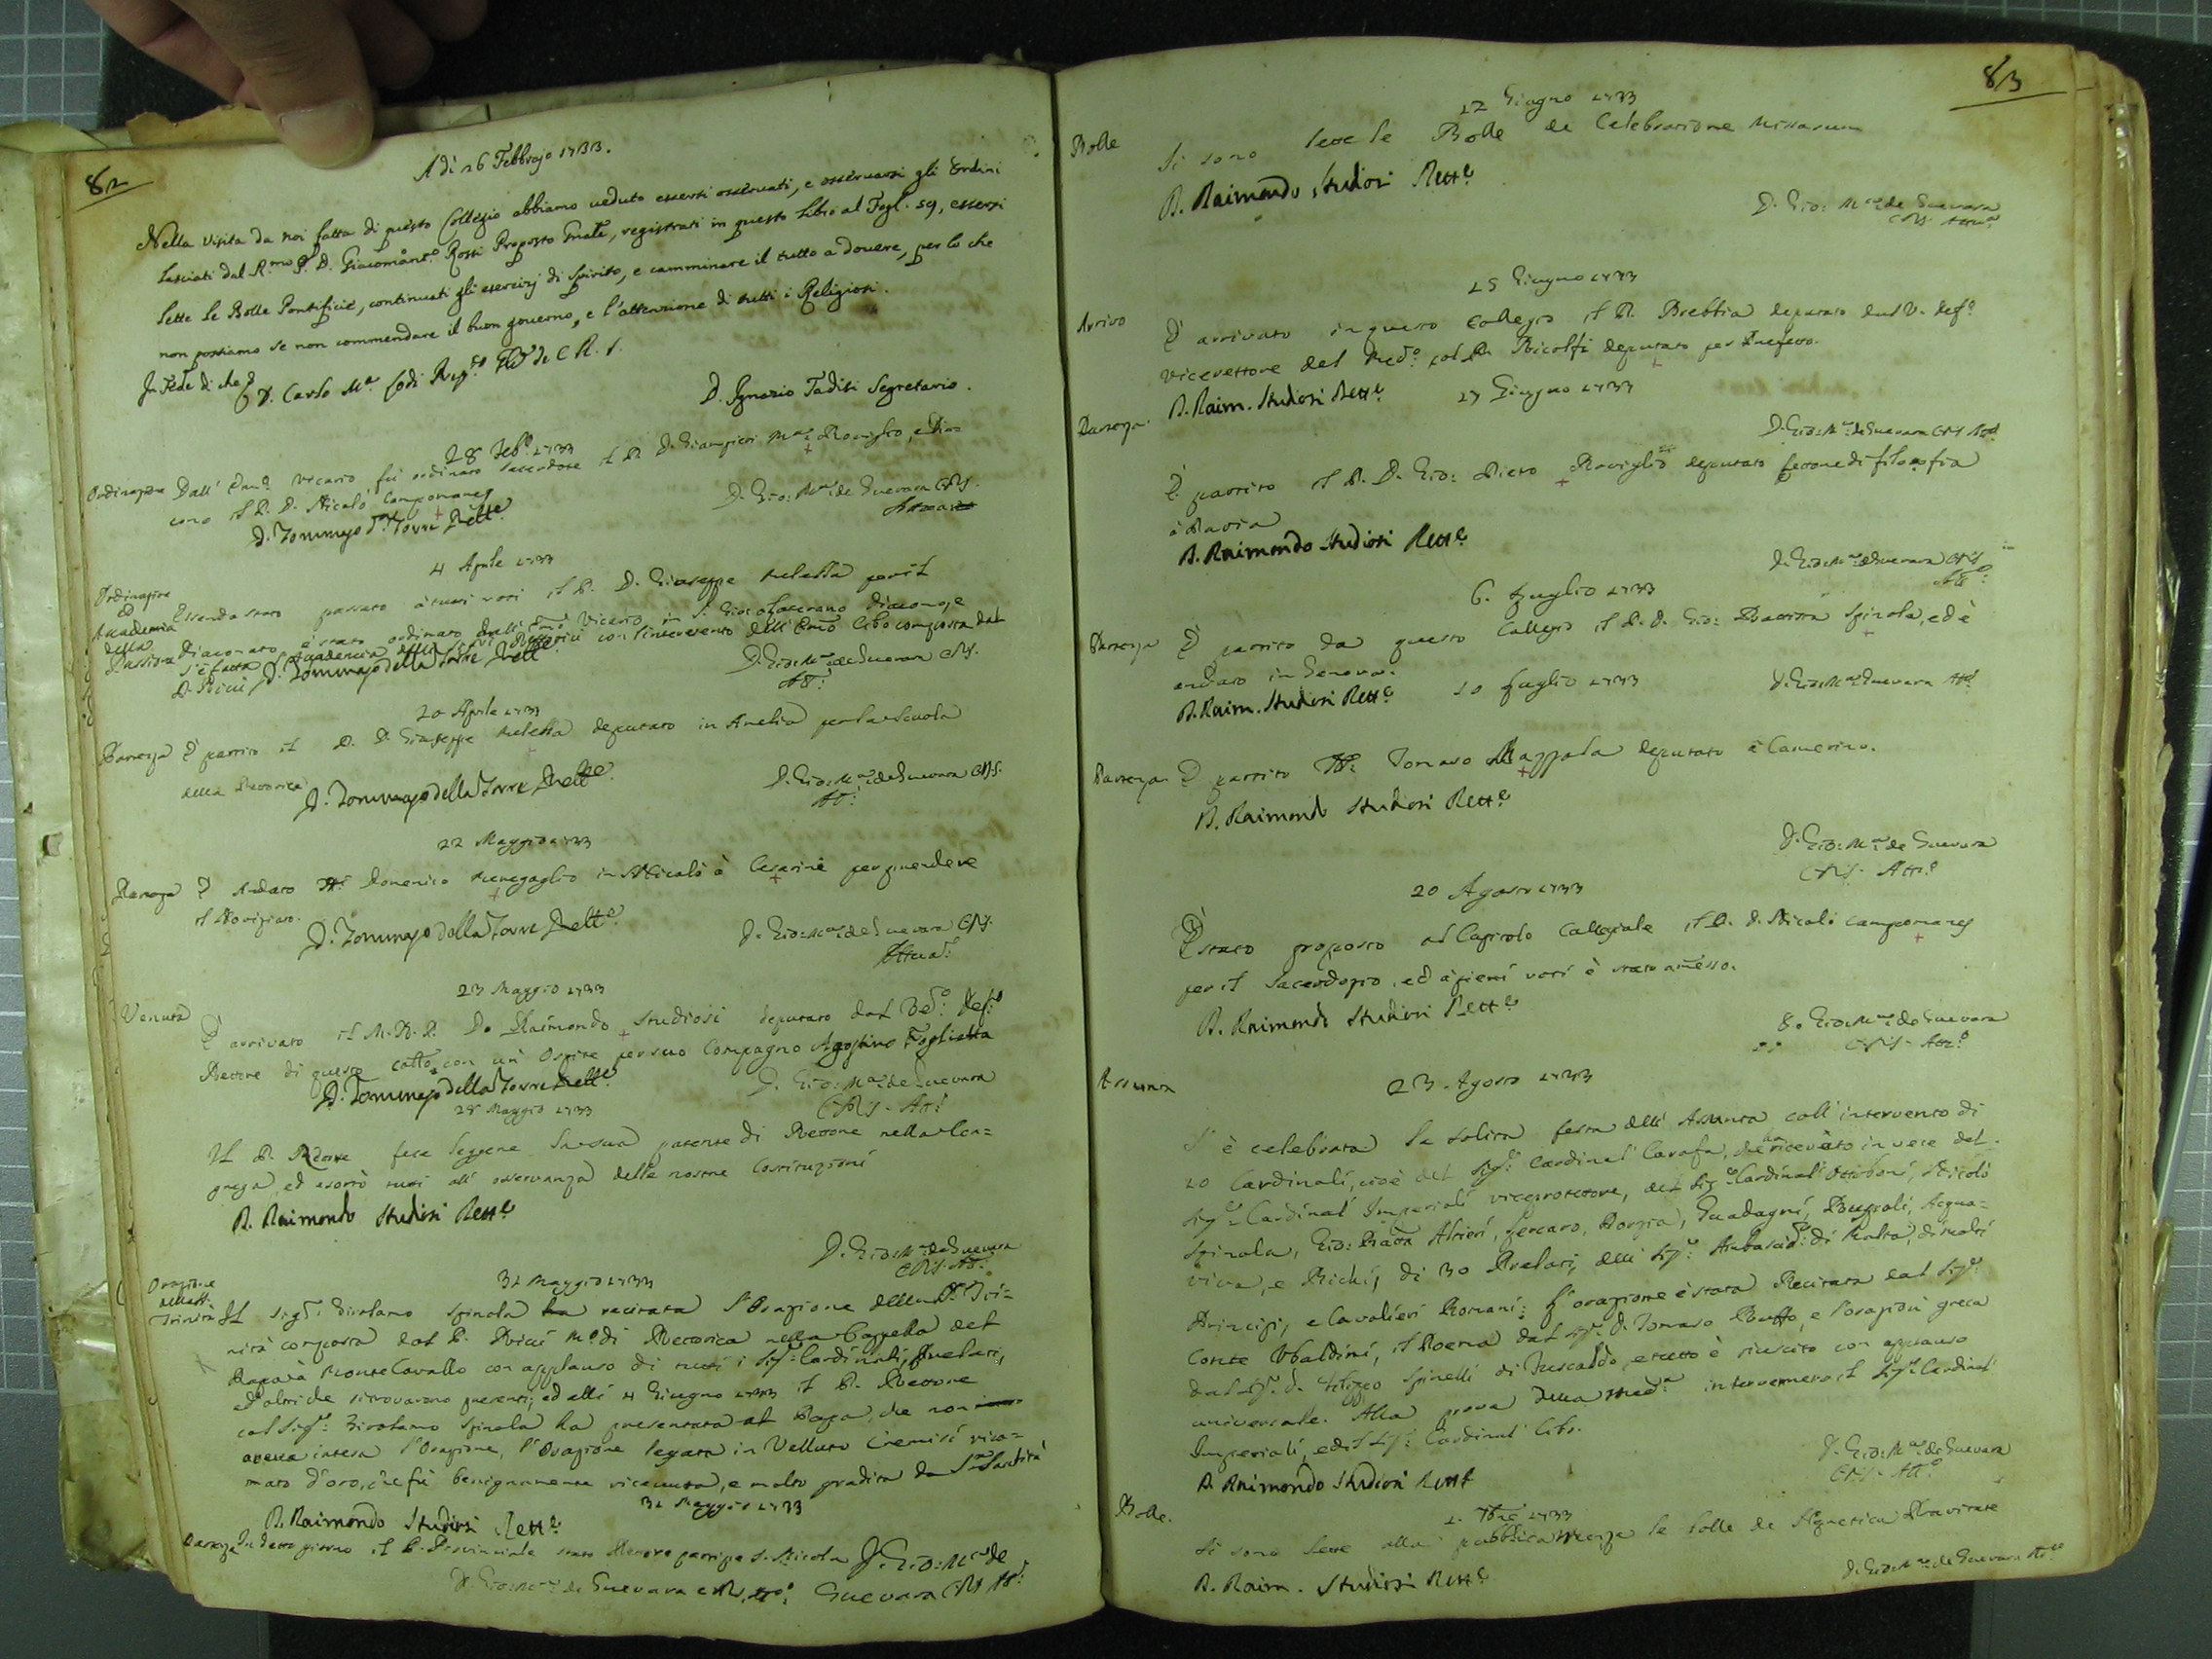 82
Adì 26 Febbrajo 1733.
Nella Visita da noi fatta di questo Collegio abbiamo veduto essersi osservati, e osservarsi gli Ordini
lasciati dal R.mo P. D. Giacomant.o Rossi Proposto Gnale, registrati in questo Libro al Fogl. 59, essersi
lette le Bolle Pontificie, continuati gli esercizj di Spirito, e camminare il tutto a dovere, per lo che
non possiamo se non commendare il buon governo, e l'attenzione di tutti i Religiosi.
In Fede di che D. Carlo M.a Lodi C. R. S.
D. Ignazio Tadisi Segretario.
28 Feb.o 1733
Ordinazione Dall' Em.o Vicario fù ordinato sacerdote il P. D. Giampieri M.a Roviglio, e Dia=
cono il P. D. Nicolò Campomanes
D. Gio: M.a de Guevara CRS.
D. Tommaso d.a Torre Rett.e
4 Aprile 1733
Ordinazione
Essendo stato passato à tutti voti il P. D. Giuseppe Meletta per il
ed
Accademia
Diaconato, è stato ordinato dall' Emo Vicario in S. Gio: Laterano Diacono, e
della
Passione
s'è fatta l'Accademia con l'intervento dell' Emo Cibo composta dal
P. Ricci D. Tommaso della Torre Rett.e
D. Gio: M.a de Guevara CRS.
Att:
20 Aprile 1733
Partenza È partito il P. D. Giuseppe Meletta deputato in Amelia per la scuola
della Rettorica
D. Tommaso della Torre Rett.e
D. Gio: M.a de Guevara CRS.
Att:
22 Maggio 1733
Partenza È andato Domenico Menegaglio in S Nicolò à Cesarini per prendere
il Noviziato.
D. Tommaso della Torre Rett.e
D. Gio: M.a de Guevara CRS.
Attua:
23 Maggio 1733
Venuta
È arrivato il M. R. P. D. Raimondo Studiosi deputato dal Ved: Def.o
Rettore di questo Coll.o con un' Ospite per suo Compagno Agostino Foglietta
D. Tommaso della Torre Rett.e
D. Gio: M.a de Guevara
CRS. Att.
28 Maggio 1733
Il P. Rettore fece leggere la sua patente di Rettore nella Con=
grega, ed esortò tutti all' osservanza delle nostre Costituzioni
P. Raimondo Studiosi Rett.e
D. Gio: M.a de Guevara
CRS. Att:
31 Maggio 1733
Orazione
della SS.
Trinità Il Sig.r Girolamo Spinola ha recitata l'Orazione della SS. Tri=
nità composta dal P. Ricci M.o di Rettorica nella Cappella del
Papa à Monte Cavallo con applauso di tutti i Sig.ri Cardinali, Prelati,
ed altri che si trovarono presenti; ed alli 4 Giugno 1733 il P. Rettore
col Sig.r Girolamo Spinola ha presentata al Papa, che non
aveva intesa l'Orazione, l'Orazione legata in Velluto Cremisi rica=
mato d'oro, che fù benignamente ricevuta, e molto gradita da S. Santità
P. Raimondo Studiosi Rett.e
31 Maggio 1733
Partenza In detto giorno il P. Provinciale stato Rettore partì per S. Nicola
D. Gio: M.a de
D. Gio: M.a de Guevara CRS. Att.o
Guevara CRS Att:
83
12 Giugno 1733
Bolle
Si sono lette le Bolle de Celebratione Missarum
P. Raimondo Studiosi Rett.e
D. Gio: M.a de Guevara
CRS. Attu.o
15 Giugno 1733
Arrivo
È arrivato in questo Collegio il P. Brebbia deputato dal V. Def.o
Vicerettore del Med.o col P. Ricolfi deputato per Prefetto.
P. Raim. Studiosi Rett.e
17 Giugno 1733
D. Gio: M.a de Guevara CRS Att.
Partenza.
È partito il P. D. Gio: Pietro Roviglio deputato Lettore di filosofia
à Pavia
P. Raimondo Studiosi Rett.e
D. Gio: M.a de Guevara CRS
Att:
6. Luglio 1733
Partenza È partito da questo Collegio il P. D. Gio: Battista Spinola, ed è
andato in Genova.
P. Raim. Studiosi Rett.e
10 Luglio 1733
D. Gio: M.a Guevara Att.
Partenza È partito Tomaso Mazzala deputato à Camerino.
P. Raimondo Studiosi Rett.e
D. Gio: M.a de Guevara
CRS. Att.o
20 Agosto 1733
È stato proposto al Capitolo Collegiale il P. D. Nicolò Campomanes
per il Sacerdozio, ed à pieni voti è stato amesso.
P. Raimondo Studiosi Rett.e
D. Gio: M.a de Guevara
CRS. Att.o
23. Agosto 1733
Assunta
S' è celebrata la solita festa dell' Assunta coll' intervento di
10 Cardinali, cioè del Sig.r Cardinal Carafa, che ha ricevuto in vece del
Sig.r Cardinal Imperiali viceprotettore, del Sig.r Cardinal Ottoboni, Nicolò
Spinola, Gio: Batta Altieri, Porzia, Guadagni, Acqua=
viva, e Bichi, di 30 Prelati, delli Sig.ri Ambasciad: di Malta, di molti
Principi, e Cavalieri Romani: L'orazione è stata Recitata dal Sig.r
Conte Ubaldini, il Poema dal Sig.r D. Tomaso Ruffo, e l'orazione greca
dal Sig.r D. Filippo Spinelli di Fuscaldo, e tutto è riuscito con applauso
universale. Alla prova della med.a intervennero il Sig.r Cardinal
Imperiali, ed il Sig.r Cardinal Cibo.
P. Raimondo Studiosi Rett.e
D. Gio: M.a de Guevara
CRS. Att.o
1. 7bre 1733
Bolle.
Si sono lette alla pubblica Mensa le bolle de Heretica Pravitate
P. Raim. Studiosi Rett.e
D. Gio: M.a de Guevara Att.o